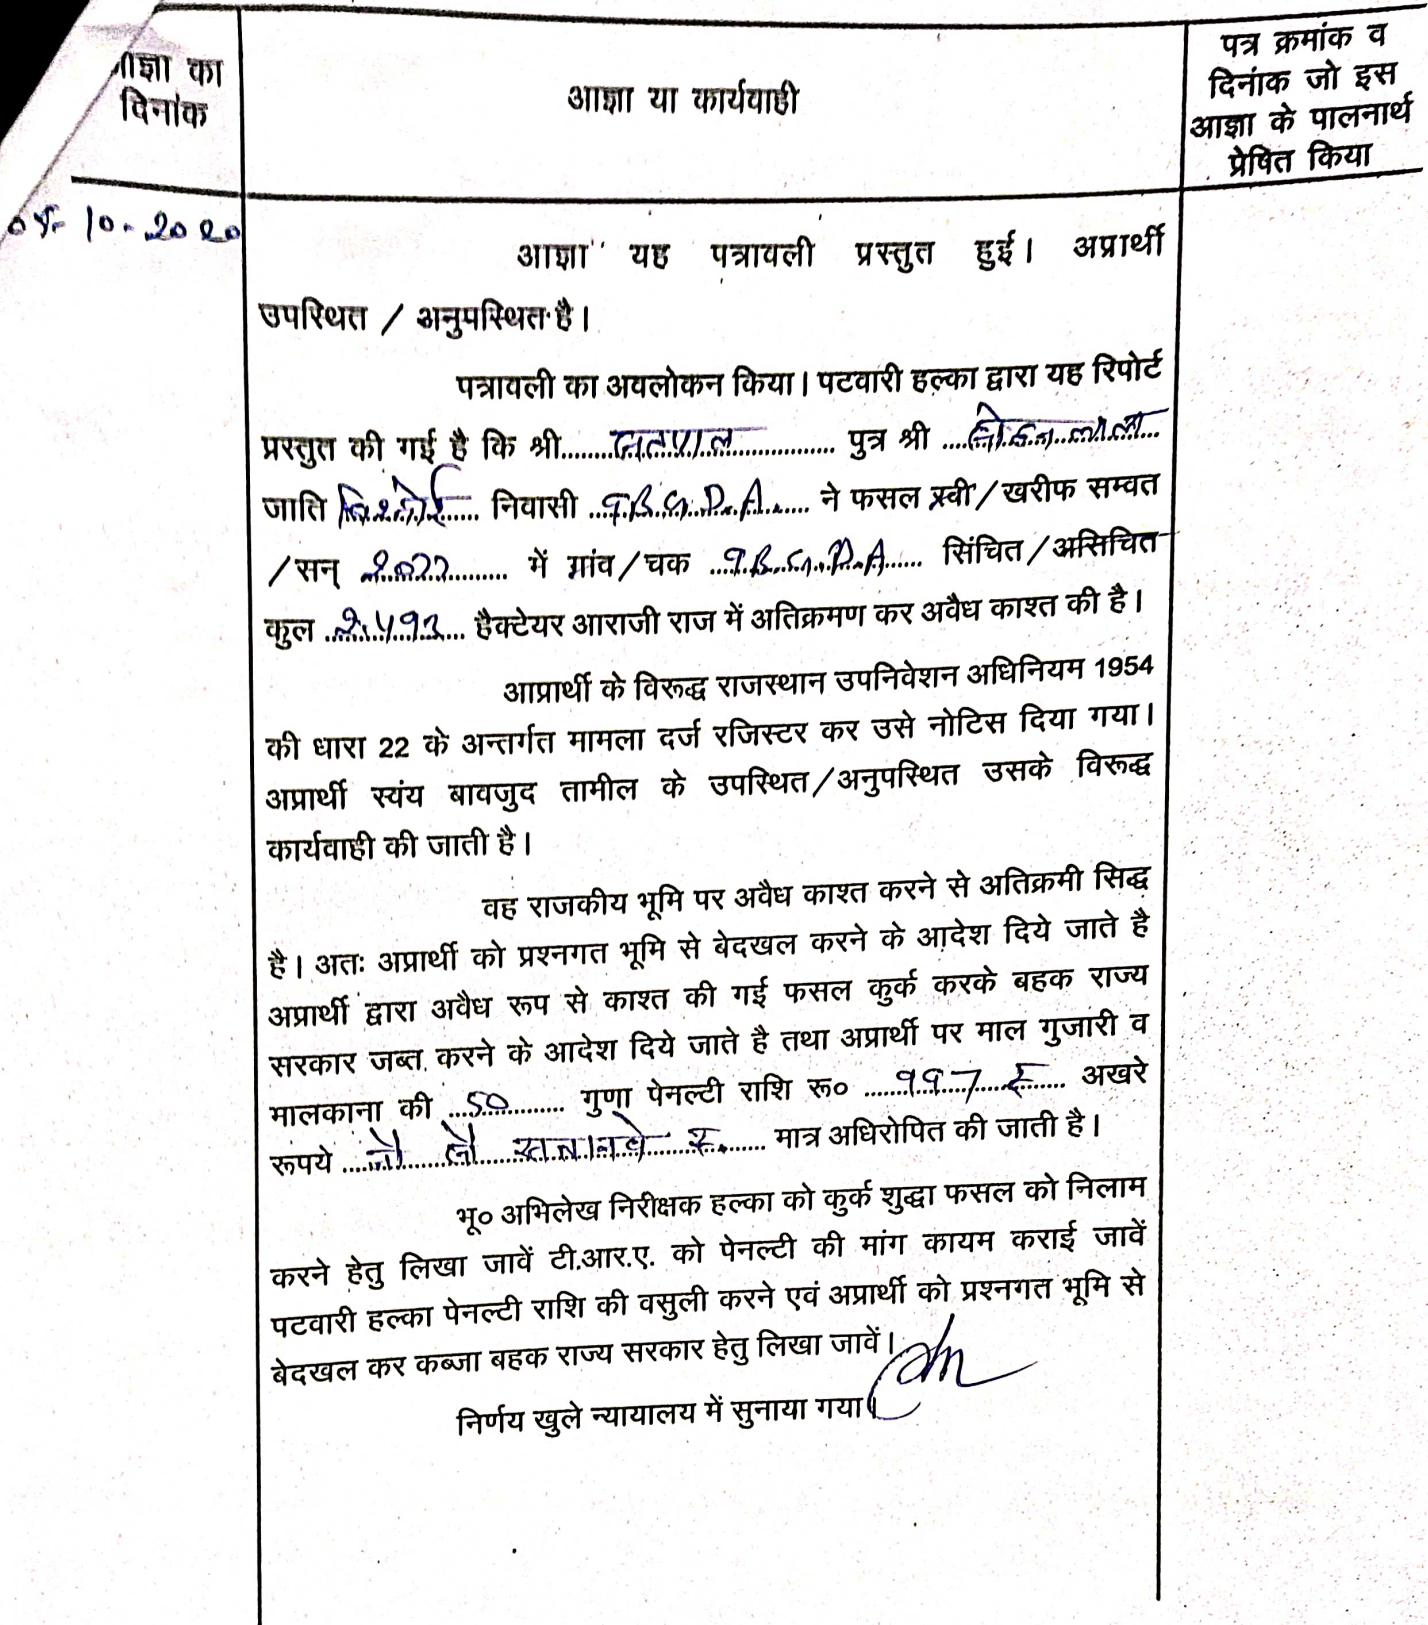 आज्ञा का
दिनांक
आज्ञा या कार्यवाही
पत्र क्रमांक व
दिनांक जो इस
आज्ञा के पालनार्थ
प्रेषित किया
10-2020
आज्ञा यह पत्रावली प्रस्तुत हुई। अप्रार्थी
उपस्थित / अनुपस्थित है।
पत्रावली का अवलोकन किया। पटवारी हल्का द्वारा यह रिपोर्ट
प्रस्तुत की गई है कि श्री.................. पुत्र श्री ..................
जाति विश्नोई निवासी ने फसल रबी/खरीफ सम्वत
/सन् में ग्रांव/चक सिंचित/असिचित
कुल हैक्टेयर आराजी राज में अतिक्रमण कर अवैध काश्त की है।
आप्रार्थी के विरूद्ध राजस्थान उपनिवेशन अधिनियम 1954
की धारा 22 के अन्तर्गत मामला दर्ज रजिस्टर कर उसे नोटिस दिया गया।
अप्रार्थी स्वंय बावजुद तामील के उपस्थित/अनुपस्थित उसके विरूद्ध
कार्यवाही की जाती है।
वह राजकीय भूमि पर अवैध काश्त करने से अतिक्रमी सिद्ध
है। अतः अप्रार्थी को प्रश्नगत भूमि से बेदखल करने के आदेश दिये जाते है
अप्रार्थी द्वारा अवैध रूप से काश्त की गई फसल कुर्क करके बहक राज्य
सरकार जब्त करने के आदेश दिये जाते है तथा अप्रार्थी पर माल गुजारी व
मालकाना की 50 गुणा पेनल्टी राशि रू० 997 रू अखरे
रूपये नौ सौ सतानवे रू. मात्र अधिरोपित की जाती है।
भू० अभिलेख निरीक्षक हल्का को कुर्क शुद्धा फसल को निलाम
करने हेतु लिखा जावें टी.आर.ए. को पेनल्टी की मांग कायम कराई जावें
पटवारी हल्का पेनल्टी राशि की वसुली करने एवं अप्रार्थी को प्रश्नगत भूमि से
बेदखल कर कब्जा बहक राज्य सरकार हेतु लिखा जावें।
निर्णय खुले न्यायालय में सुनाया गया।